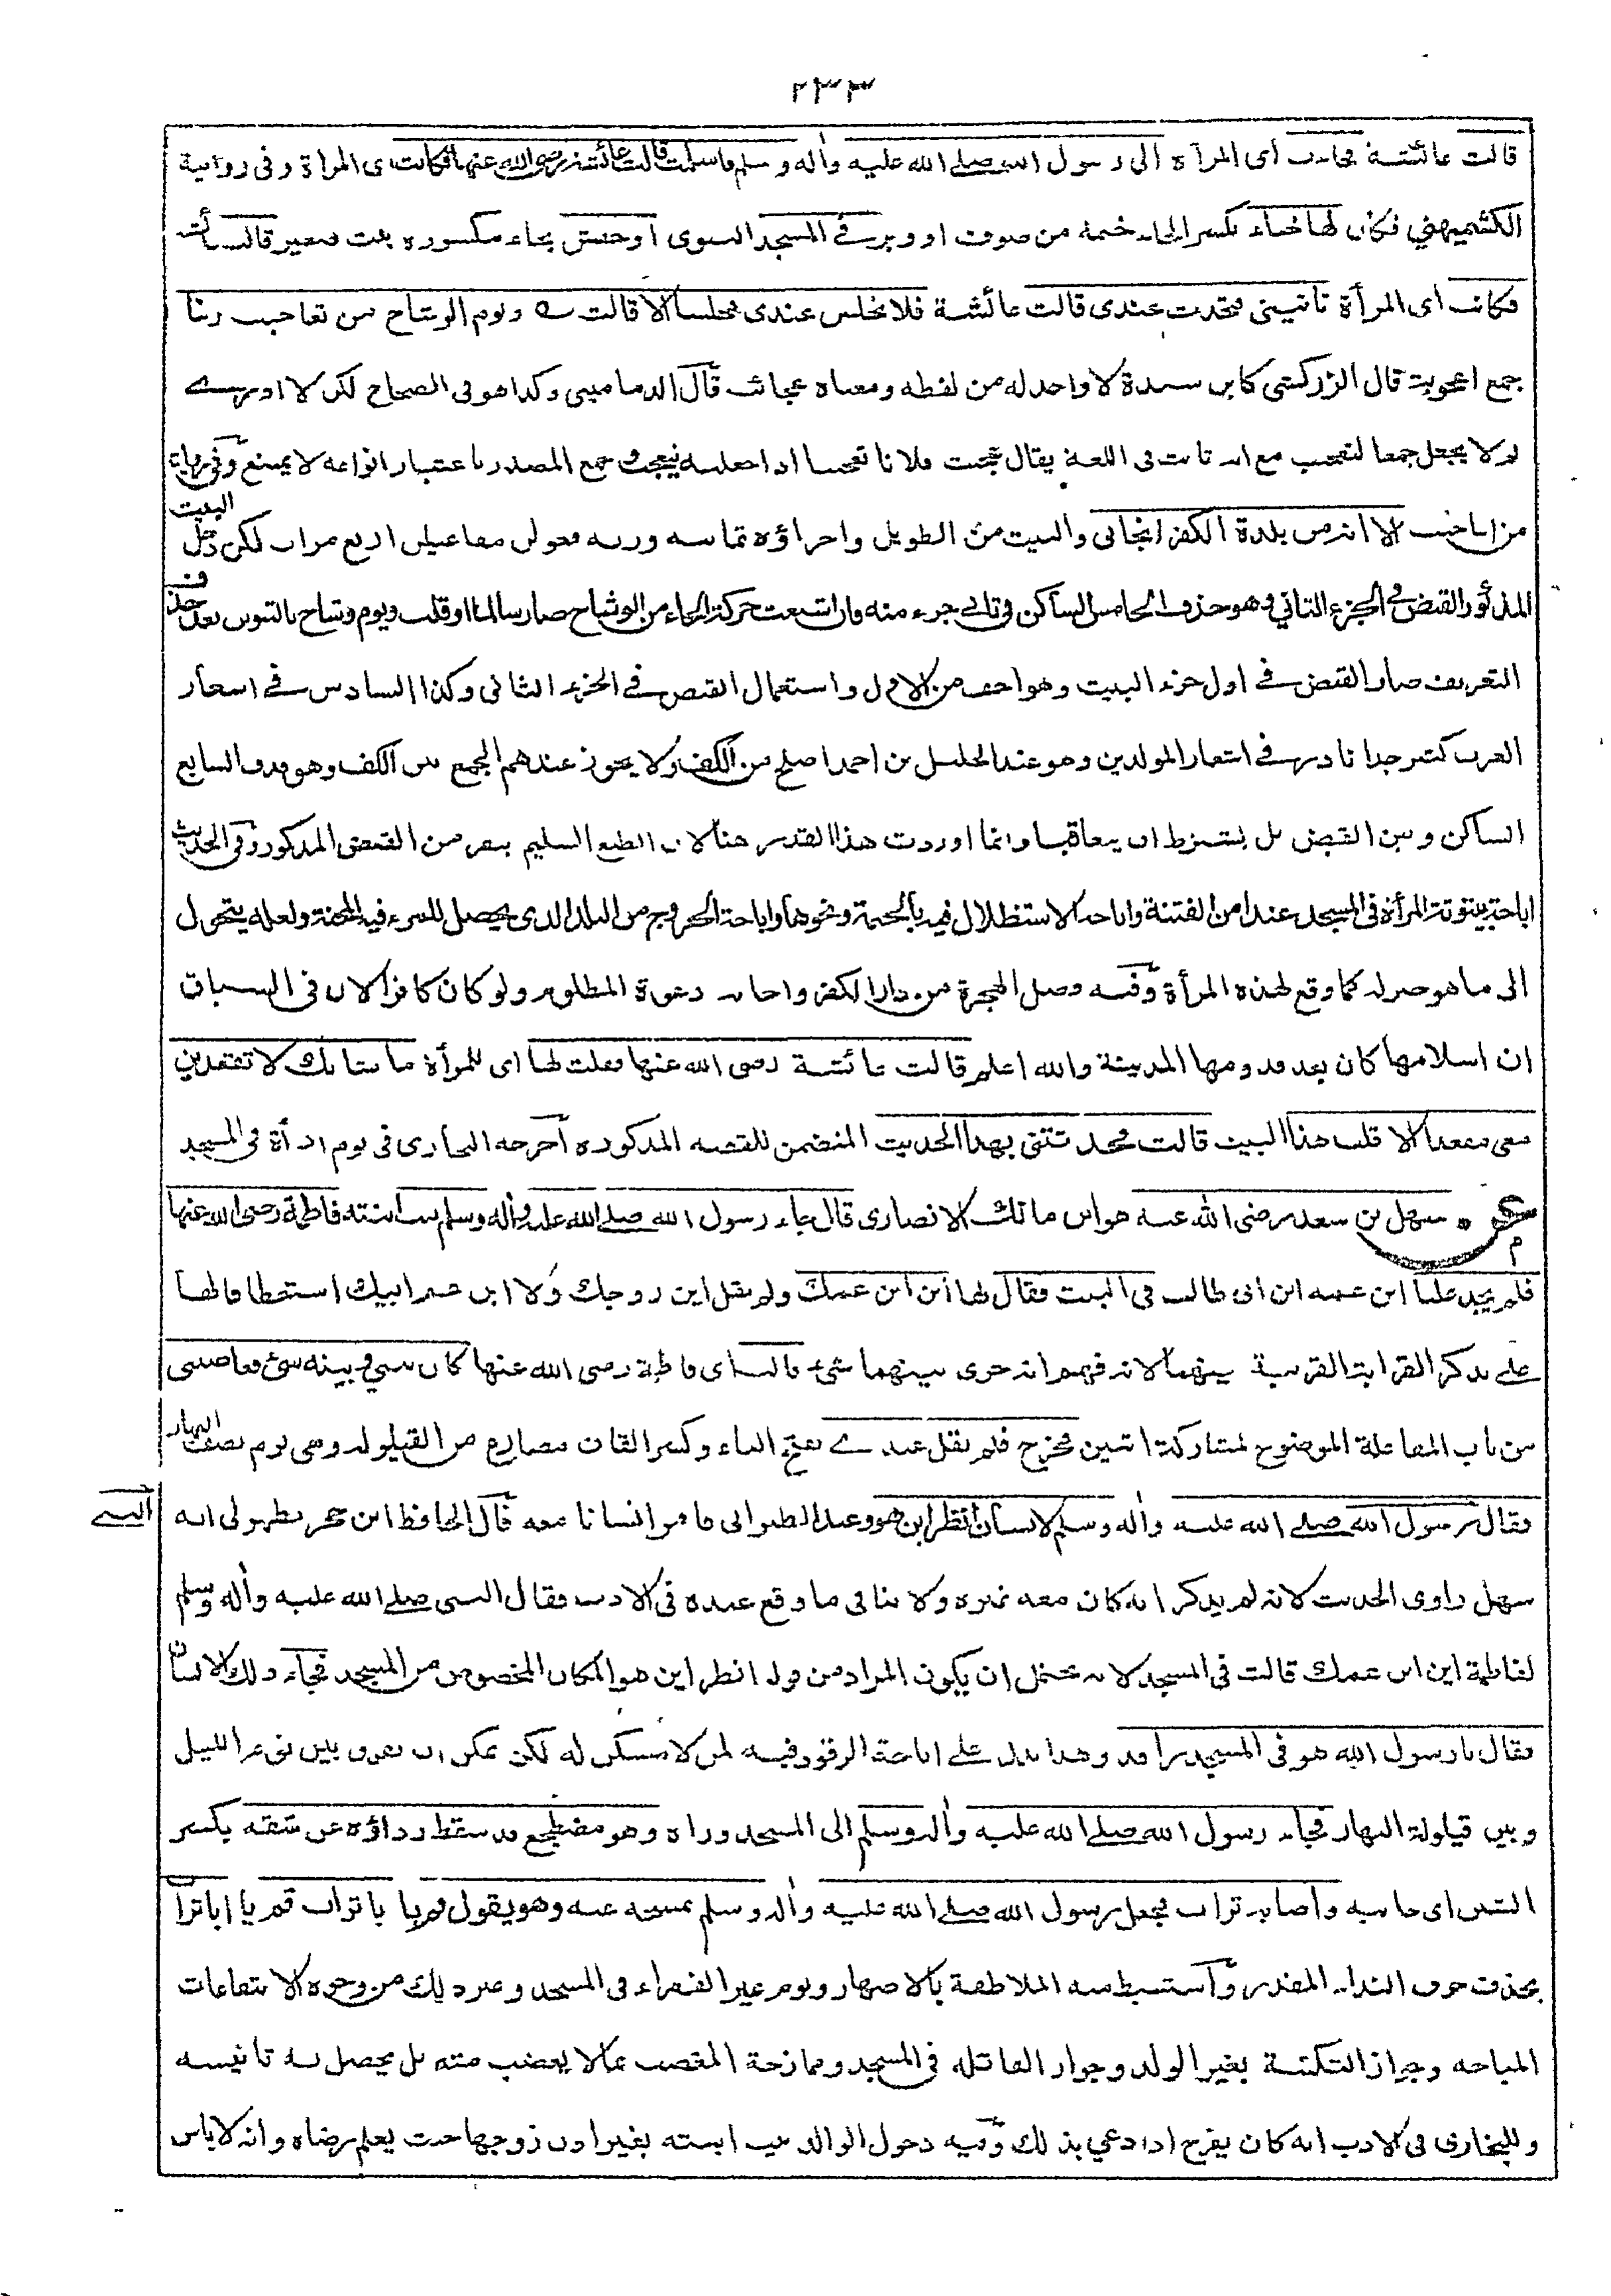 ٢٣٣
قالت عائشة فجاءت أى المرأة الى رسول الله صلى الله عليه وأله وسلم فاسلمت قالت عائشة رضى الله عنها فكانت اى المرأة وفى رواية
الكشميهني فكان لها خباء بكسر الخاء خيمة من صوف او وبر فى المسجد النبوى او حفش بحاء مكسورة بيت صغير قالت
فكانت أى المرأة تاتينى فتحدث عندى قالت عائشة فلا تجلس عندى مجلسا الا قالت ويوم الوشاح من تعاجيب ربنا
جمع اعجوبة قال الزركشى كابن سيدة لا واحد له من لفظه ومعناه عجائب قال الدماميني وكذا هو فى الصحاح لكن لا ادرى
لم لا يجعل جمعا لتعجيب مع انه ثابت فى اللغة يقال عجبت فلانا تعجيبا اذا جعلته يتعجب وجمع المصدر باعتبار انواعه لا يمتنع وفى رواية
من اعاجيب الا انه من بلدة الكفر انجانى والبيت من الطويل واجزاؤه ثمانية وزنه فعولن مفاعيلن اربع مرات لكن دخل البيت
المذكور القبض فى الجزء الثانى وهو حذف الخامس الساكن فى ثانى جزء منه فان اشبعت حركة الحاء من الوشاح صار سالما او قلت ويوم وشاح بالتنوين بعد حذف
التعريف صار القبض فى اول جزء البيت وهو اخف من الاول واستعمال القبض فى الجزء الثانى وكذا السادس فى اشعار
العرب كثير جدا نادر فى اشعار المولدين وهو عند الخليل بن احمد اصلح من الكف ولا يجوز عندهم الجمع بين الكف وهو حذف السابع
الساكن وبين القبض بل يشترط ان يتعاقبا وانما اوردت هذا القدر هنا لان الطبع السليم ينفر من القبض المذكور وفى الحديث
اباحة بيتوتة المرأة فى المسجد عند امن الفتنة واباحة الاستظلال فيه بالخيمة ونحوها واباحة الخروج من البلد الذى يحصل للمرء فيه المحنة ولعله يتحول
الى ما هو خير له كما وقع لهذه المرأة وفيه فضل الهجرة من دار الكفر واجابة دعوة المظلوم ولو كان كافرا لان فى السياق
ان اسلامها كان بعد قدومها المدينة والله اعلم قالت عائشة رضى الله عنها فقلت لها اى للمرأة ما شانك لا تقعدين
معى مقعدا الا قلت هذا البيت قالت فحدثتنى بهذا الحديث المتضمن للقصة المذكورة أخرجه البخارى فى نوم المرأة فى المسجد
سهل بن سعد رضى الله عنه هو ابن مالك الانصارى قال جاء رسول الله صلى الله عليه وأله وسلم بيت ابنته فاطمة رضى الله عنها
فلم يجد عليا ابن عمه ابن ابى طالب فى البيت فقال لها أين ابن عمك ولم يقل اين زوجك ولا ابن عم ابيك استعطافا لها
على تذكر القرابة القريبة بينهما لانه فهم انه جرى بينهما شىء قالت اى فاطمة رضى الله عنها كان بينى وبينه شئ فغاضبنى
من باب المفاعلة الموضوع لمشاركة اثنين فخرج فلم يقل عندى بفتح الياء وكسر القاف مضارع من القيلولة وهى نوم نصف النهار
فقال رسول الله صلى الله عليه وأله وسلم لانسان انظر اين هو وعند الطبرانى فامر انسانا معه قال الحافظ ابن حجر يظهر لى انه
سهل راوى الحديث لانه لم يذكر انه كان معه غيره ولا ينافى ما وقع عنده فى الادب فقال النبى صلى الله عليه وأله وسلم
لفاطمة اين ابن عمك قالت فى المسجد لانه يحتمل ان يكون المراد من قوله انظر اين هو المكان المخصوص من المسجد فجاء ذلك الانسان
فقال يا رسول الله هو فى المسجد راقد وهذا يدل على اباحة الرقود فيه لمن لا مسكن له لكن يمكن ان يفرق بين نوم الليل
وبين قيلولة النهار فجاء رسول الله صلى الله عليه وأله وسلم الى المسجد وراه وهو مضطجع قد سقط رداؤه عن شقه بكسر
الشين اى جانبه وأصابه تراب فجعل رسول الله صلى الله عليه وأله وسلم يمسحه عنه وهو يقول قم يا ابا تراب قم يا ابا تراب
بحذف حرف النداء المقدر وأستنبط منه الملاطفة بالاصهار ونوم غير الفقراء فى المسجد وغير ذلك من وجوه الانتفاعات
المباحة وجواز التكنية بغير الولد وجواز القائلة فى المسجد وممازحة المغضب بما لا يغضب منه بل يحصل به تانيسه
وللبخارى فى الادب انه كان يفرح اذا دعي بذلك وفيه دخول الوالد بيت ابنته بغير اذن زوجها حيث يعلم رضاه وانه لا باس